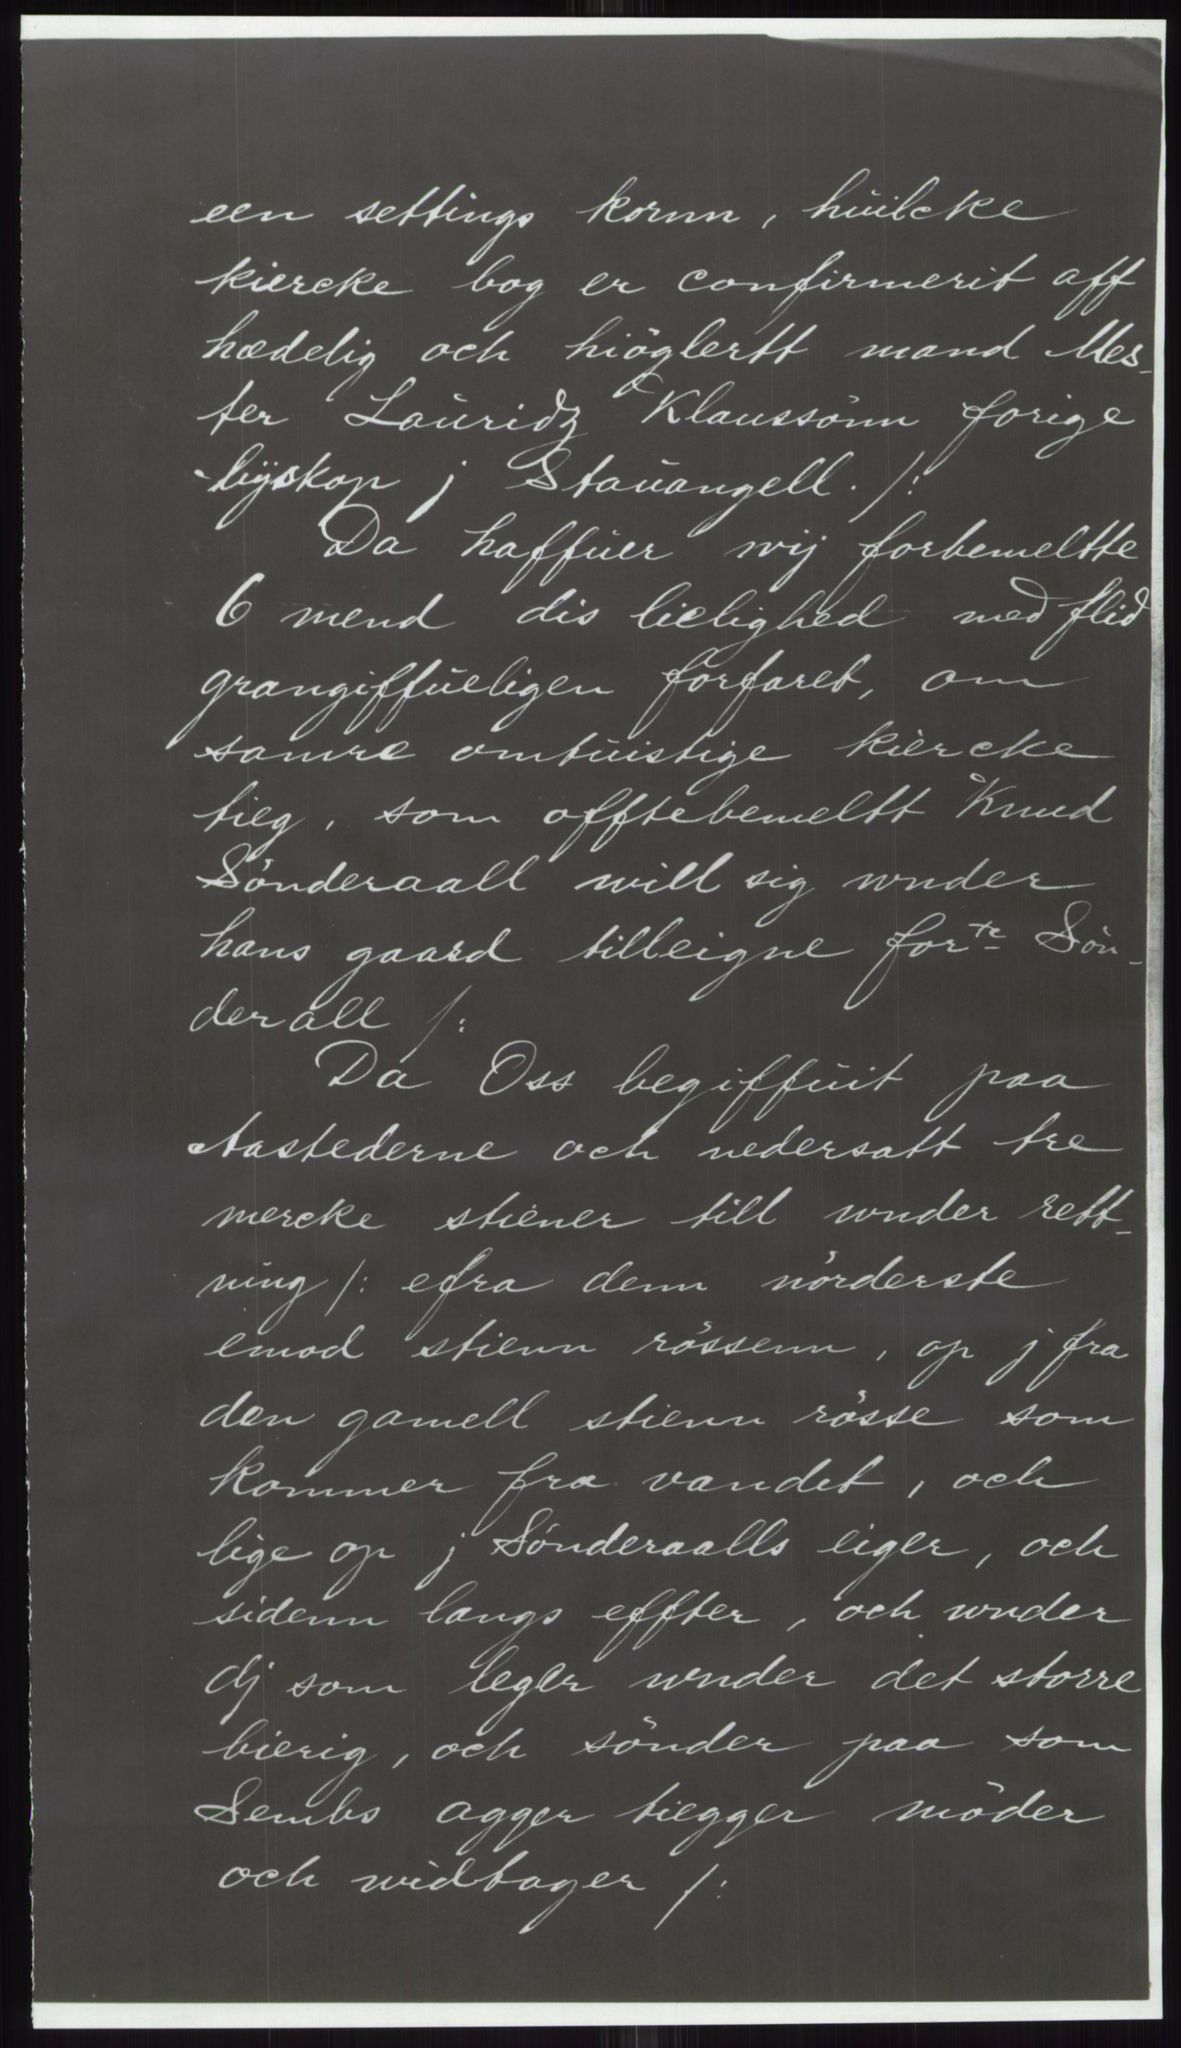 een settings kornn, huilcke
kiercke bog er confirmerit aff
hædelig och hiöglertt mand Mes-
ter Lauridz Klaussönn forige
bijskop j Stauangell. /:
Da haffuer wij forbemeltte
6 mend dis lielighed med flid
grangiffueligen forfaret, om
samre omtuistige kiercke
tieg, som offtebemeltt Knud
Sönderaall will sig wnder
hans gaard tilleigne forte Sön-
derall /:
Da Oss begiffuit paa
Aastederne och nedersatt tre
mercke stiener till wnder rett-
ning /: efra denn nörderste
emod stienn rössenn, op j fra
den gamell stienn rösse som
kommer fra vandet, och
lige op j Sönderaalls eiger, och
sidenn langs effter, och wnder
dj som leger wnder det storre
bierig, och sönder paa som
Sembs agger tiegger möder
och widtager /: